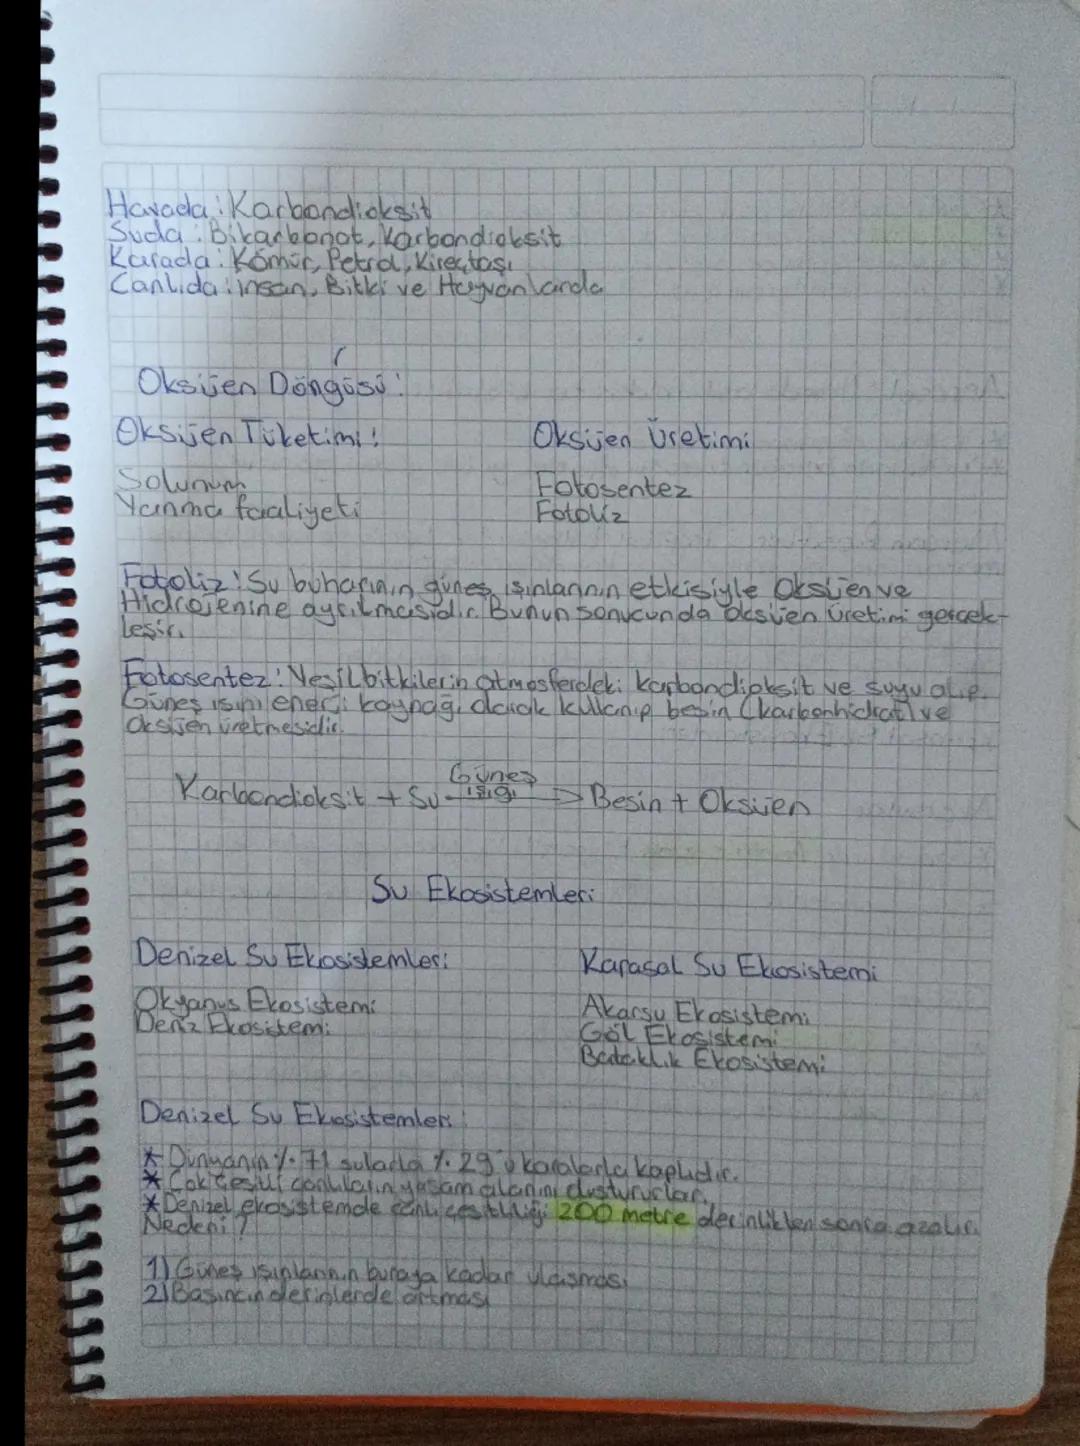 Havada: Karbondioksit
Suda: Bikarbonat, Karbondioksit
Karada: Kömür, Petrol, Kireçtaşı
Canlıda: insan, Bitki ve Hayvanlarda
Oksijen Döngüsü:
Oksijen Tüketimi:
Oksijen Üretimi
Solunum
Yanma faaliyeti
Fotosentez
Fotoliz
Fotoliz: Su buharının güneş ışınlarının etkisiyle Oksijen ve
Hidrojenine ayrılmasıdır. Bunun sonucunda oksijen üretimi gerçek-
leşir.
Fotosentez: Yeşil bitkilerin atmosferdeki karbondioksit ve suyu alıp
Güneş ışını enerji kaynağı olarak kullanıp besin (karbonhidrat) ve
oksijen üretmesidir.
Karbondioksit + Su Güneş ışığı → Besin + Oksijen
Su Ekosistemleri
Denizel Su Ekosistemleri
Karasal Su Ekosistemi
Okyanus Ekosistemi
Deniz Ekositemi
Akarsu Ekosistemi
Göl Ekosistemi
Bataklık Ekosistemi
Denizel Su Ekosistemleri
* Dünyanın %71 sularla %29'u karalarla kaplıdır.
* Çok çeşitli canlıların yaşam alanını oluştururlar.
* Denizel ekosistemde canlı çeşitliliği 200 metre derinlikten sonra azalır.
Nedeni?
1) Güneş ışınlarının buraya kadar ulaşması
2) Basıncın derinlerde artması